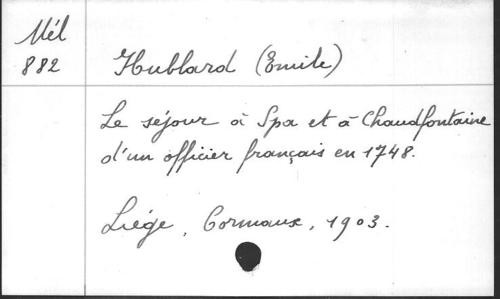 Mél
882
Hublard (Emile)
Le séjour à Spa et à Chaudfontaine
d'un officier français en 1748.
Liége, Cormaux, 1903.